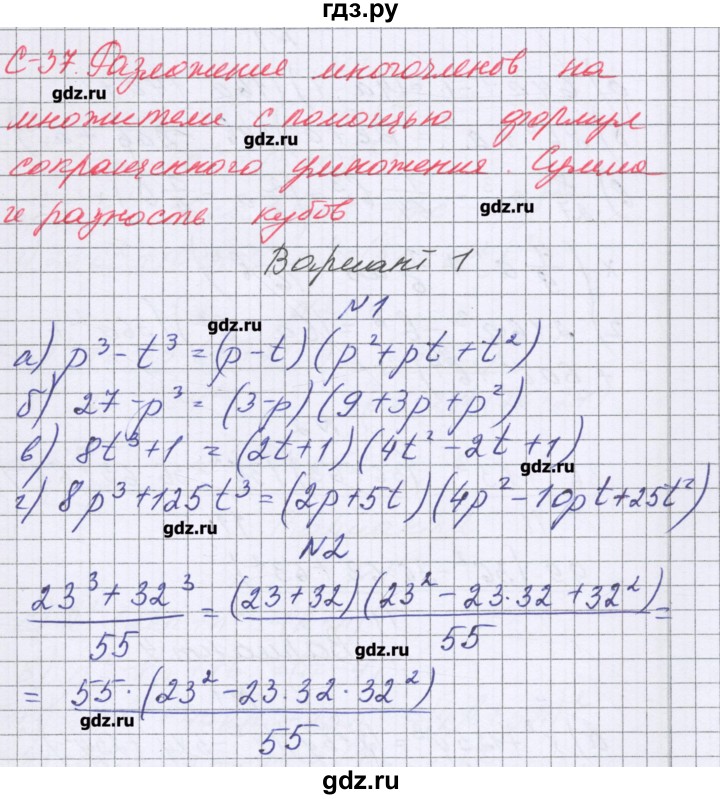 гдз.ру
С-37. Разложение многочленов на
gdz.ru
множители с помощью формул
gdz.ru
сокращенного умножения. Сумма
gdz.ru
и разность кубов
Вариант 1
№1
gdz.ru
а) p³ - t³ = (p - t)(p² + pt + t²)
б) 27 - p³ = (3 - p)(9 + 3p + p²)
в) 8t³ + 1 = (2t + 1)(4t² - 2t + 1)
gdz.ru
г) 8p³ + 125t³ = (2p + 5t)(4p² - 10pt + 25t²)
gdz.ru
№2
23³ + 32³ / 55 = (23 + 32)(23² - 23·32 + 32²) / 55 =
gdz.ru
= 55·(23² - 23·32·32²) / 55
gdz.ru
gdz.ru